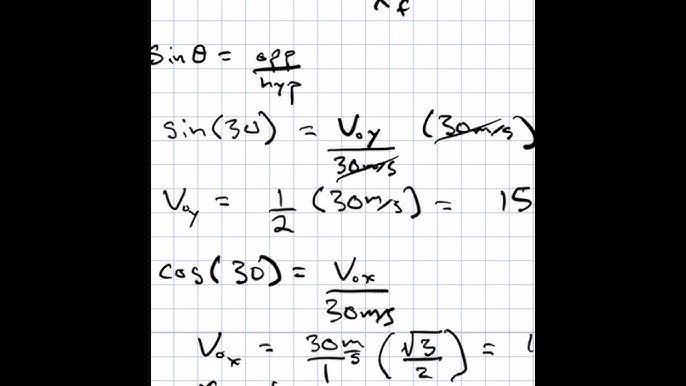 x_f
sin θ = opp/hyp
sin(30) = V_oy/30m/s (30m/s)
V_oy = 1/2 (30m/s) = 15
cos(30) = V_ox/30m/s
V_ox = 30m/s/1 (√3/2) =